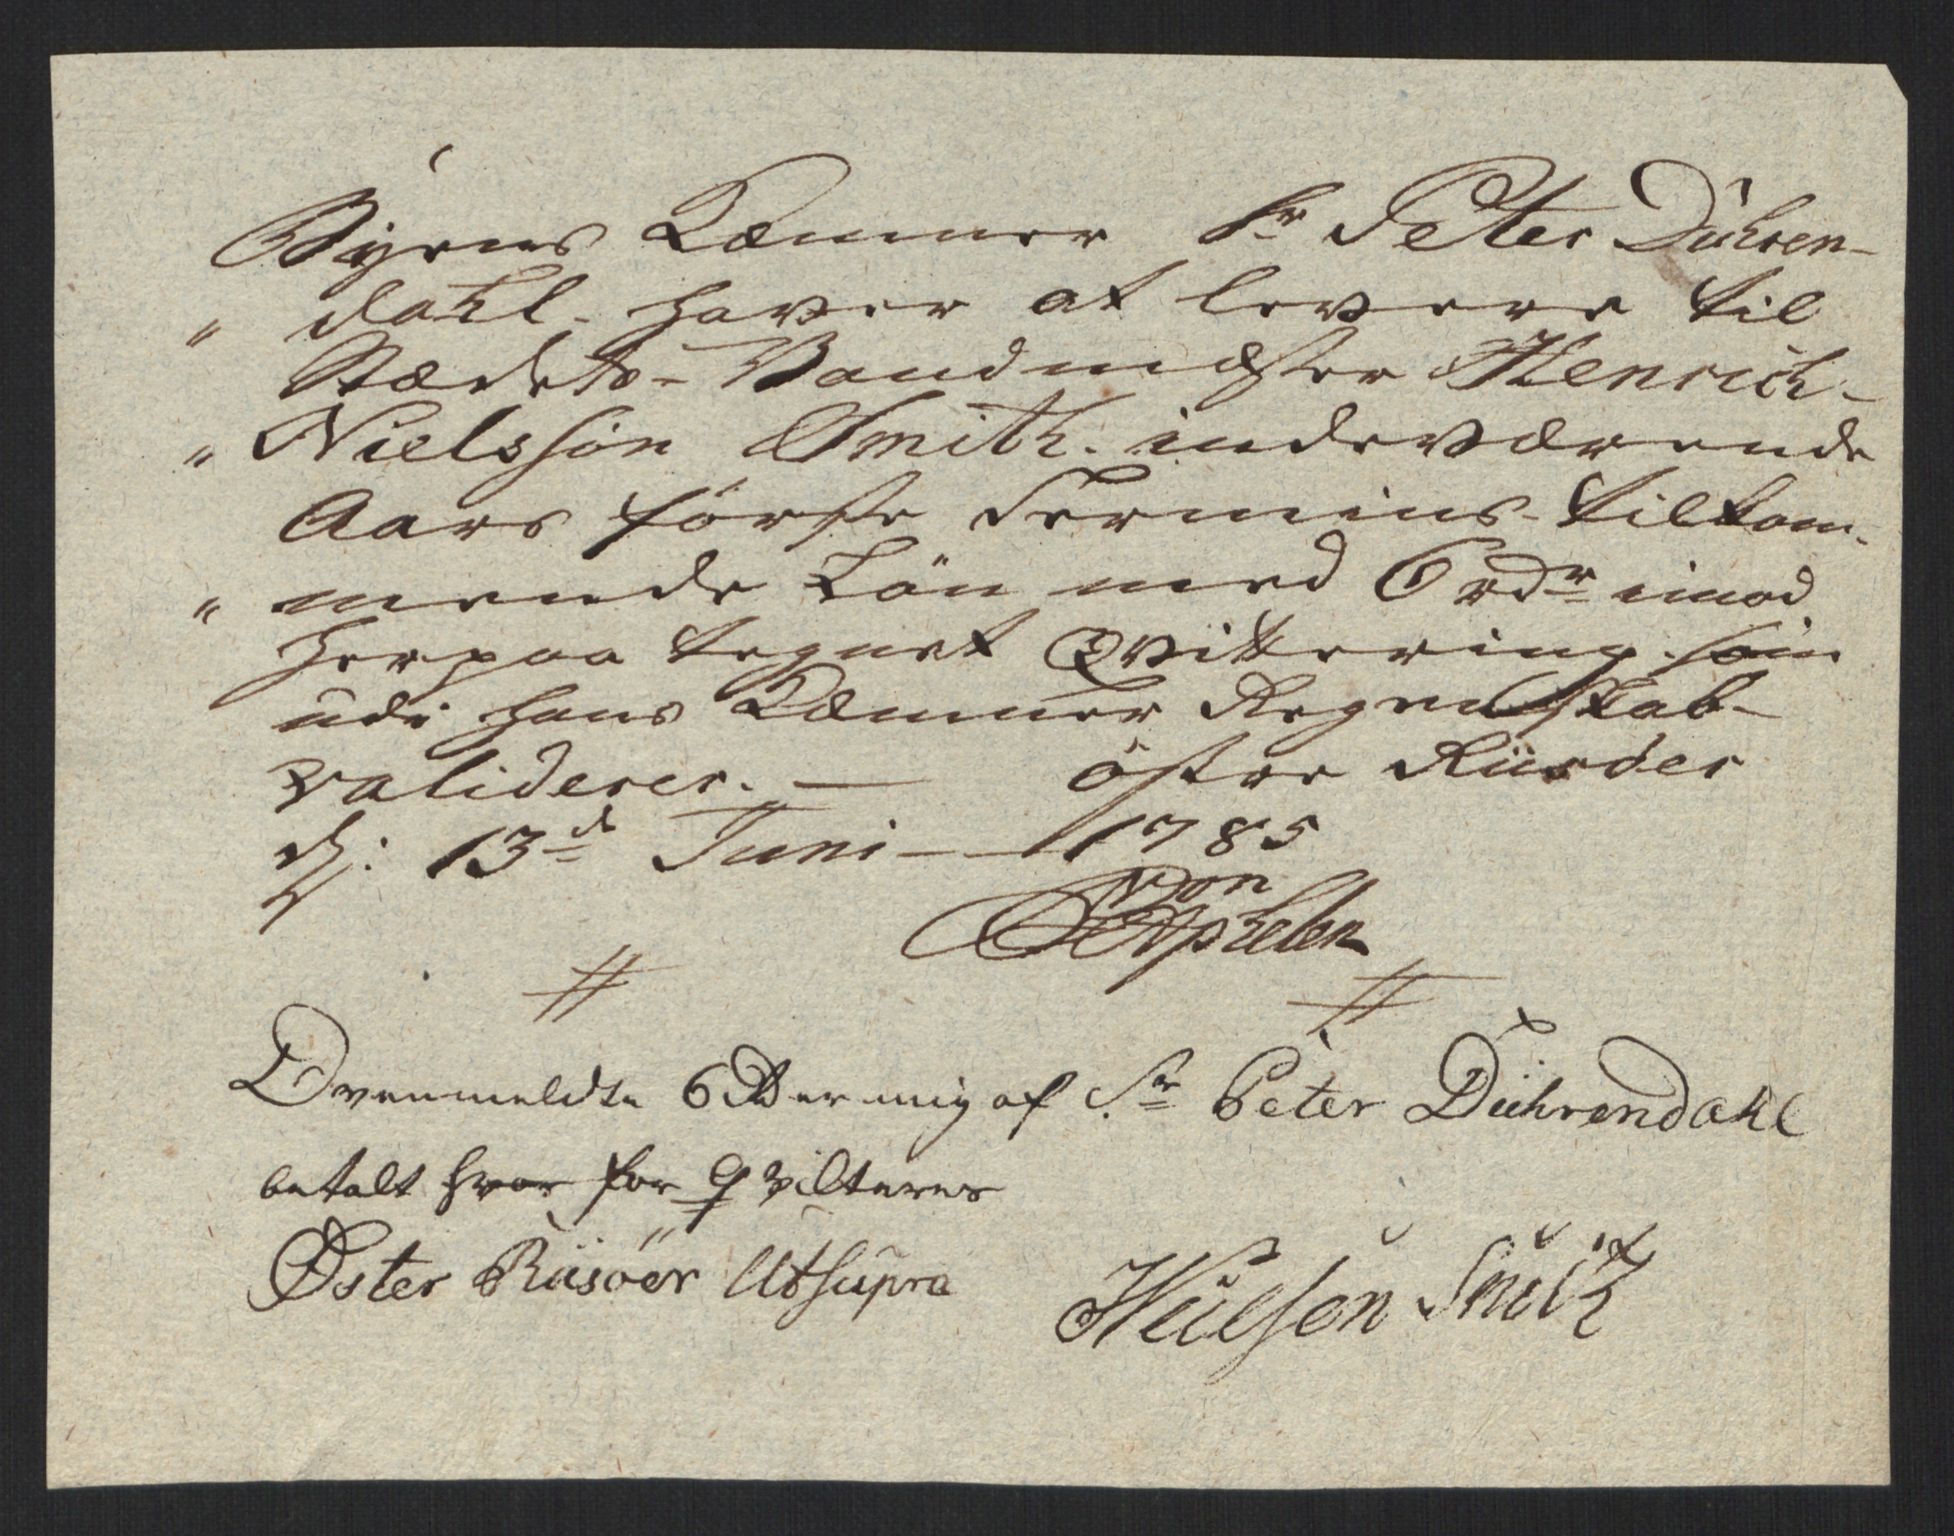 Byens Kæmner Sr Peter Dühren-
" dahl. haver at levere til
Stædets Vandmester Henrich-
" Nielssøn Smith. indeværende
Aars förste Termins tilkom-
" mende Lön med 6 rdr imod
herpaa tegnet Qvittering. som
udi hans Kæmner Regenskab-
validerer. — östre Riisöer
d: 13de Juni — 1785
von
Aphelen
Ovenmeldte 6 Rd er mig af Sr Peter Dührendahl
betalt hvor for qvitteres
Øster Riisöer Utsupra
HNielsen Smith